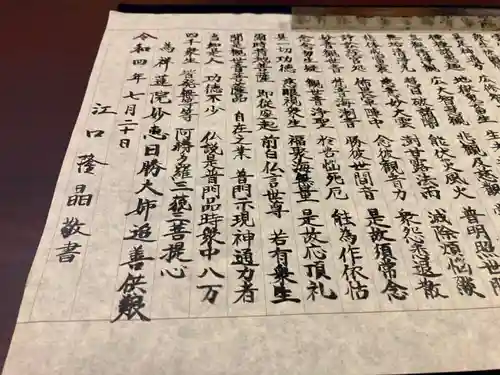 真観清浄観 広大智慧観 悲観及慈観
無垢清浄光 慧日破諸闇 能伏災風火 普明照世間
悲体戒雷震 慈意妙大雲 澍甘露法雨 滅除煩悩焔
諍訟経官処 怖畏軍陣中 念彼観音力 衆怨悉退散
妙音観世音 梵音海潮音 勝彼世間音 是故須常念
念念勿生疑 観世音浄聖 於苦悩死厄 能為作依怙
具一切功徳 慈眼視衆生 福聚海無量 是故応頂礼
爾時持地菩薩 即従座起 前白仏言世尊 若有衆生
聞是観世音菩薩品 自在之業 普門示現神通力者
当知是人 功徳不少 仏説是普門品時衆中八万
四千衆生 皆発無等等 阿耨多羅三藐三菩提心
為祥蓮院妙恵日勝大姉追善供養
令和四年七月二十日
江口隆晶敬書